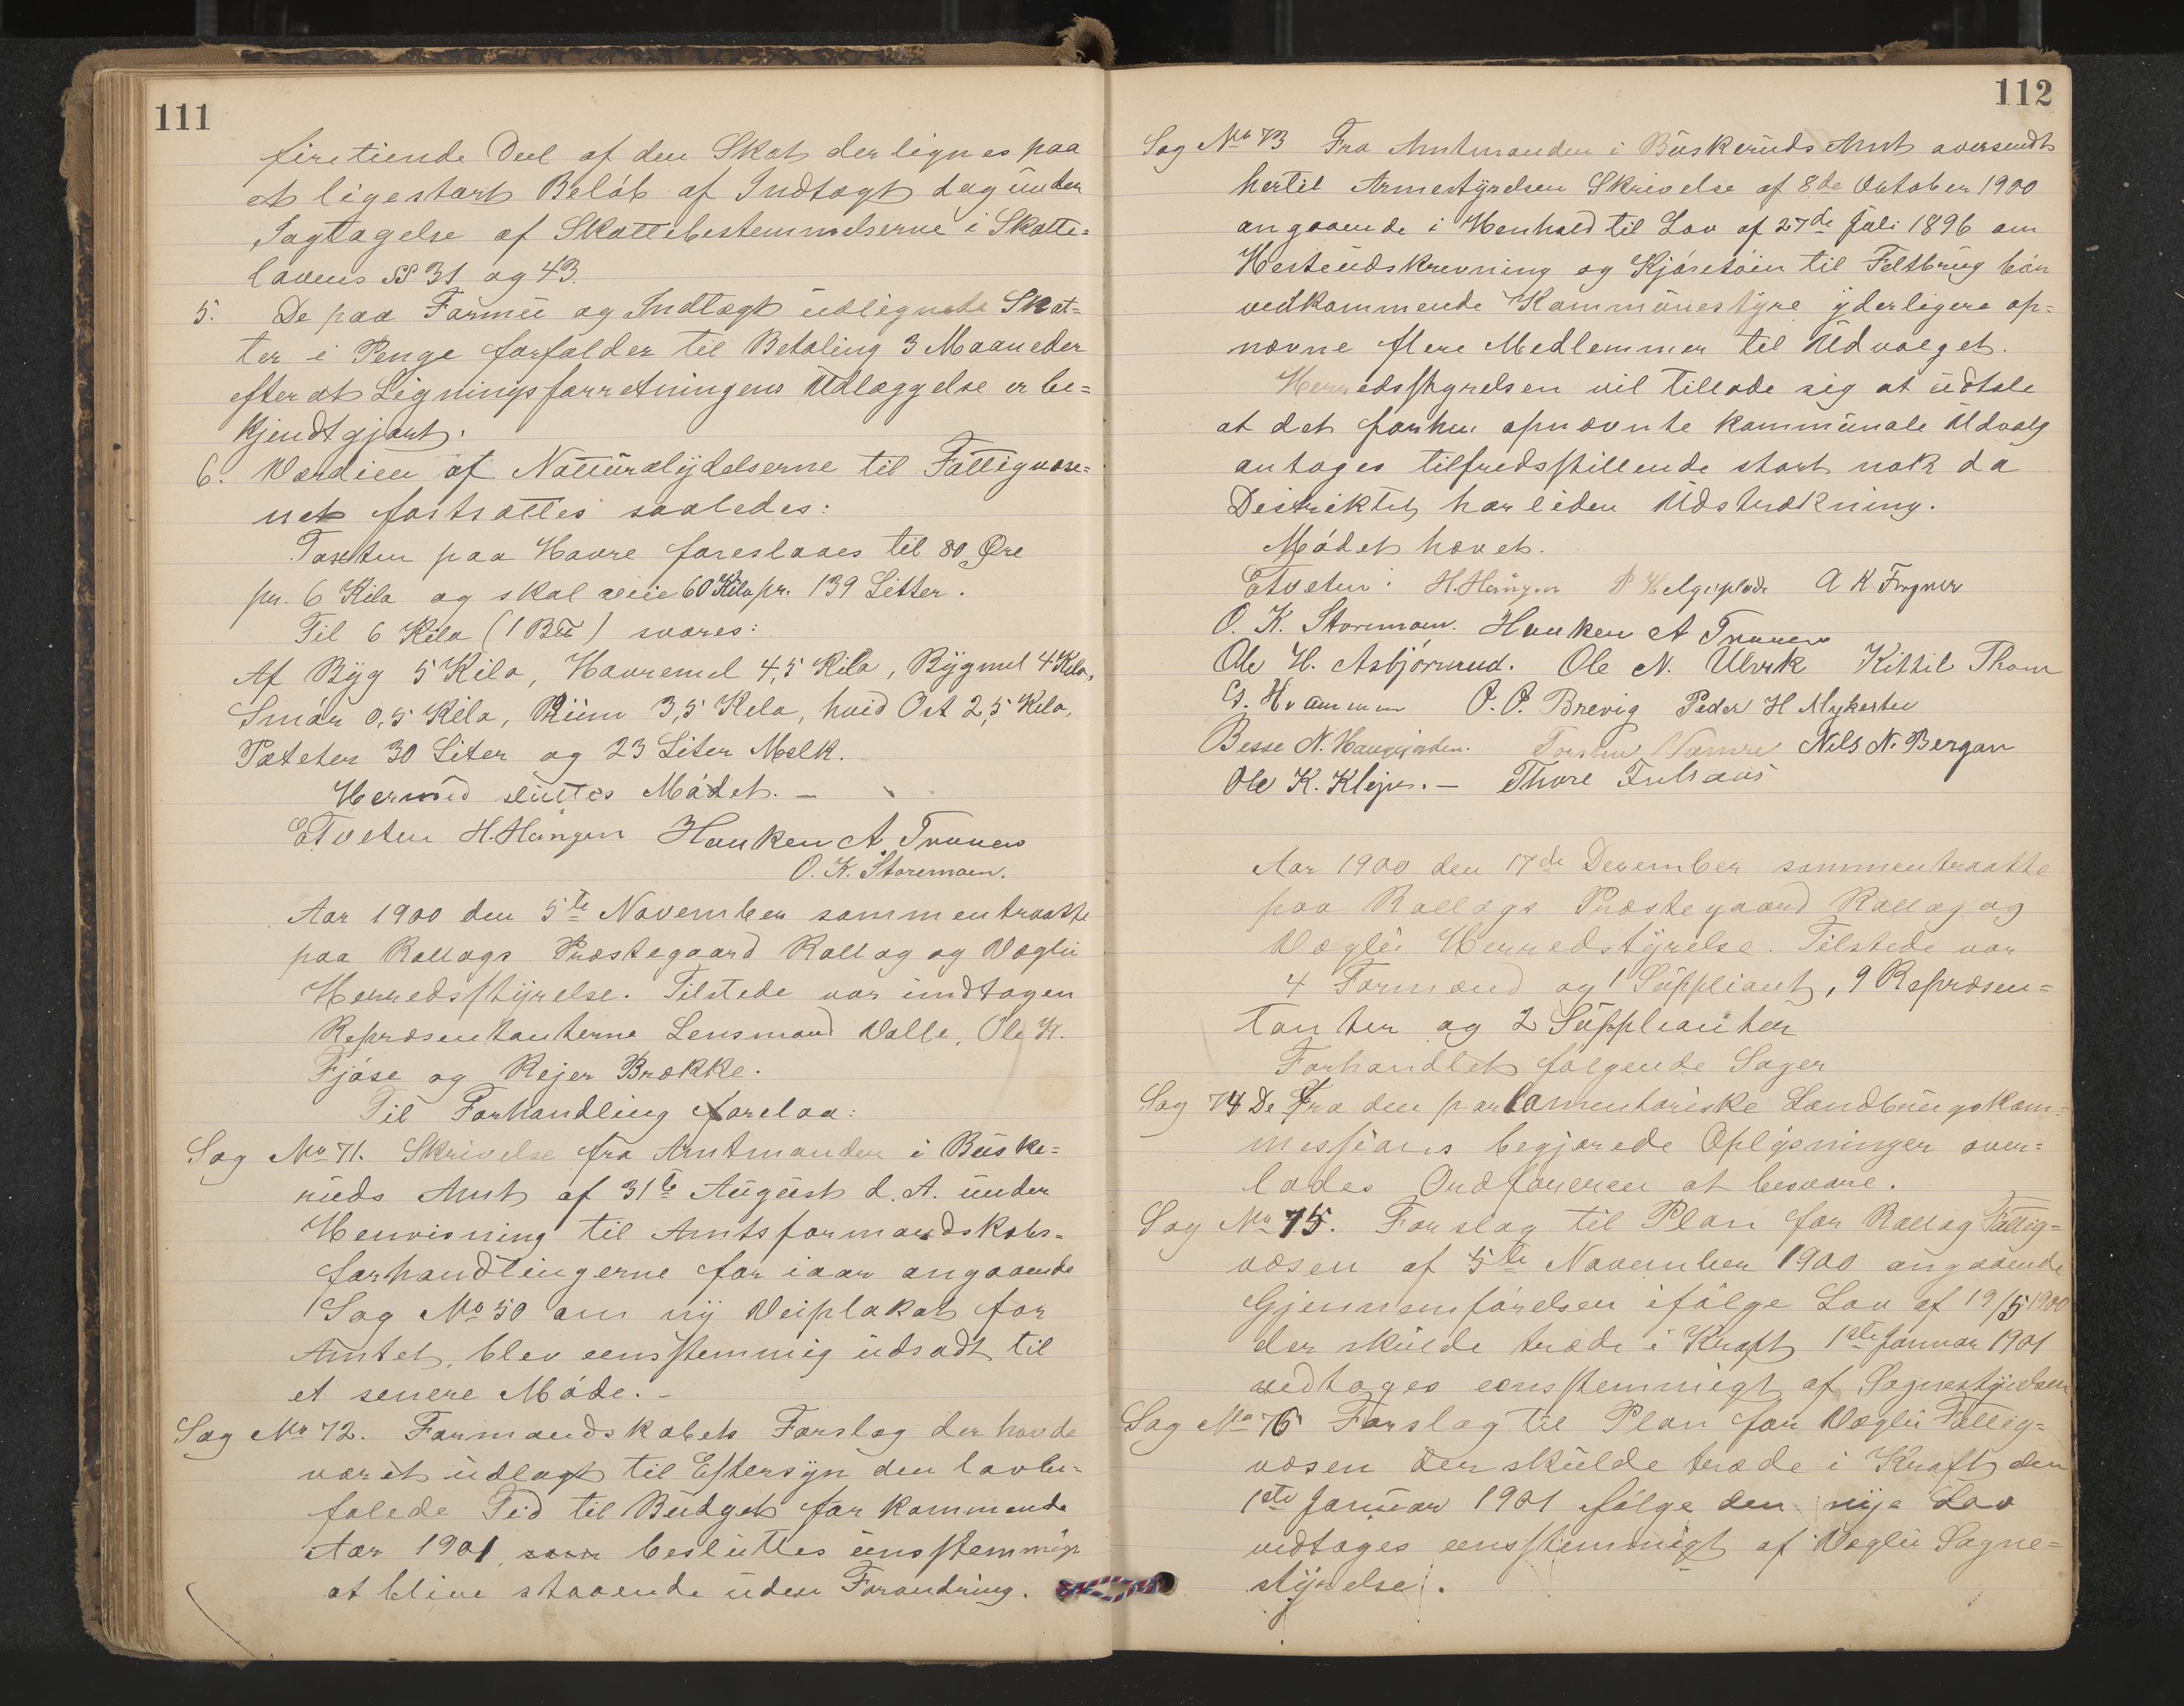 111
firetiende Deel af den Skat der lignes paa
et ligestort Beløb af Indtægt dog under
Iagtagelse af Skattebestemmelserne i Skatte-
lovens §§ 31 og 43.
5. De paa Formue og Indtægt udlignede Skat-
ter i Penge forfalder til Betaling 3 Maaneder
efter at Ligningsforretningens Udlæggelse er be-
kjendtgjort.
6. Værdien af Naturalydelserne til Fattigvæse-
net fortsættes saaledes:
Taxten paa Havre foreslaaes til 80 Øre
pr. 6 Kilo og skal veie 60 Kilo pr. 139 Litter.
Til 6 Kilo (1 ) svares:
Af Byg 5 Kilo, Havremel 4,5 Kilo, Bygmel 4 Kilo,
Smør 0,5 Kilo, 3,5 Kilo, hvid Ost 2,5 Kilo,
Poteter 30 Liter og 23 Liter Melk.
Hermed sluttes Mødet. –
E Tveten H. Haugen Hauken A Traaen
O. K. Storemoen.
Aar 1900 den 5te November sammentraatte
paa Rollags Præstegaard Rollag og Væglii
Herredsstyrelse. Tilstede var undtagen
Repræsentanterne Lensmand Valle, Ole K.
Fjøse og Rejer Brække.
Til Forhandling forelaa:
Sag No 71. Skrivelse fra Amtmanden i Buske-
ruds Amt af 31te August d. A. under
Henvisning til Amtsformandskabs-
forhandlingerne for iaar angaaende
Sag No 50 om ny Veiplakat for
Amtet, blev eensstemmig udsadt til
et senere Møde. –
Sag No 72. Formandskabets Forslag der havde
været udlagt til Eftersyn den lovbe-
falede Tid til Budget for kommende
Aar 1901, som besluttes eensstemmigt
at blive staaende uden Forandring.
112
Sag No 73 Fra Amtmanden i Buskeruds Amt oversendt
hertil Armestyrelsen Skrivelse af 8de October 1900
angaaende i Henhold til Lov af 27de Juli 1896 om
Hesteudskrevning og Kjøretøier til Feltbrug bør
vedkommende Kommunestyre yderligere op-
nævne flere Medlemmer til Udvalget.
Herredsstyrelsen vil tillade sig at udtale
at det forhen opnævnte kommunale Udvalg
antages tilfredsstillende stort nok da
Destriktet har liden Udstrækning.
Mødet hævet.
E Tveten. H. Haugen P Helgeplads A K Fogner
O. K. Storemoen. Hauken A Traaen
Ole H. Asbjørnrud. Ole N. Ulvik Kittil Thom
G. Hvammen O. O. Brevig Peder H Mykerster
Besse N. Haugjorden. Torsten Næmre Nils N. Bergan
Ole K. Klejva. – Thore Fulsaas
Aar 1900 den 17de December sammentraatte
paa Rollags Præstegaard Rollag og
Væglii Herredstyrelse. Tilstede var
4 Formænd og 1 Suppliant, 9 Repræsen-
tanter og 2 Supplianter
Forhandlet følgende Sager
Sag 74 De Fra den parlamentariske Landbrugskom-
messions begjærede Oplysninger over-
lades Ordføreren at besvare.
Sag No 75. Forslag til Plan for Rollag Fattig-
væsen af 5te November 1900 angaaende
Gjennemførelsen ifølge Lov af 19/5 1900
der skulde træde i Kraft 1ste Januar 1901
vedtages eensstemmigt af Sognestyrelsen
Sag No 76 Forslag til Plan for Væglii Fattig-
væsen der skulde træde i Kraft den
1ste Januar 1901 følge den nye Lov
vedtages eensstemmigt af Væglii Sogne-
styrelse.